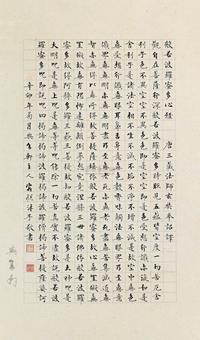 般若波羅蜜多心經 唐三藏法師玄奘奉詔譯
觀自在菩薩行深般若波羅蜜多時照見五蘊皆空度一切苦厄舍
利子色不異空空不異色色即是空空即是色受想行識亦復如是
舍利子是諸法空相不生不滅不垢不淨不增不減是故空中無色無
受想行識無眼耳鼻舌身意無色聲香味觸法無眼界乃至無意
識界無無明亦無無明盡乃至無老死亦無老死盡無苦集滅道無
智亦無得以無所得故菩提薩埵依般若波羅蜜多故心無罣礙無
罣礙故無有恐怖遠離顛倒夢想究竟涅槃三世諸佛依般若波
羅蜜多故得阿耨多羅三藐三菩提故知般若波羅蜜多是大神咒是
大明咒是無上咒是無等等咒能除一切苦真實不虛故說般若波
羅蜜多咒即說咒曰揭諦揭諦波羅揭諦波羅僧揭諦菩提薩婆訶
辛卯年 敬書